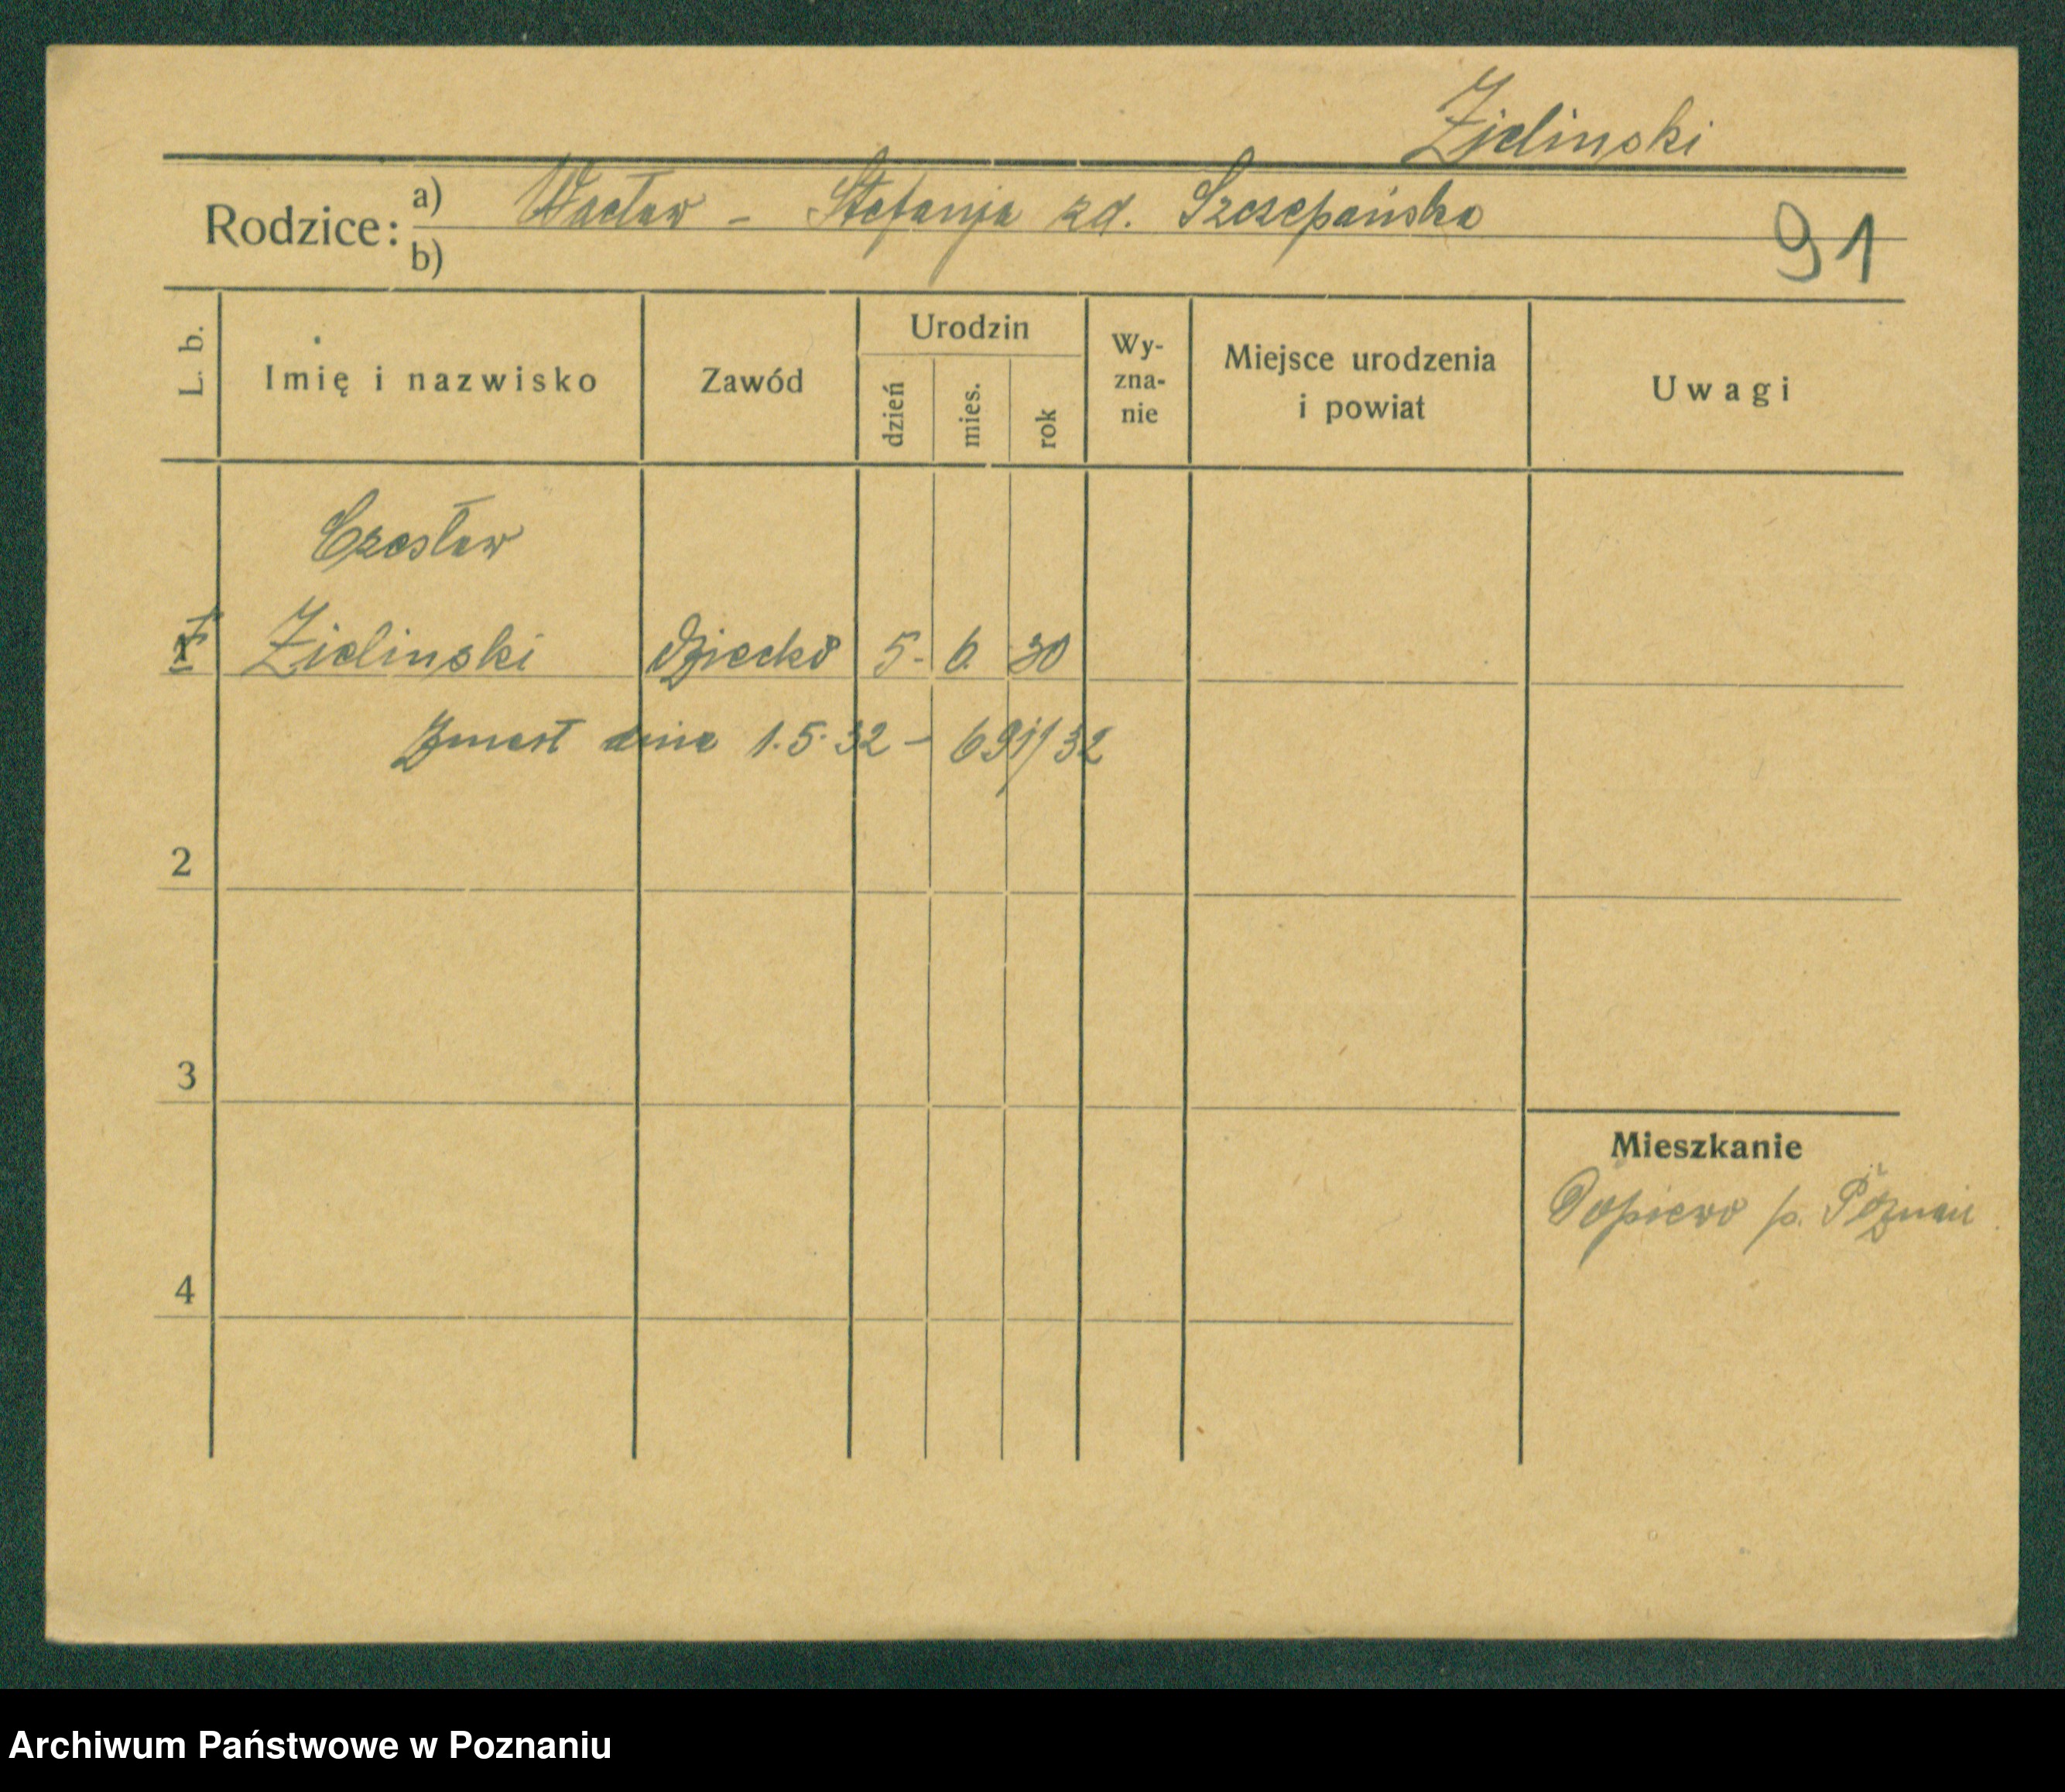 Zielinski
Rodzice: a) Wacław - Stefanja zd. Szczepańska
b)
91
L. b. Imię i nazwisko Zawód Urodzin dzień mies. rok Wy-zna-nie Miejsce urodzenia i powiat Uwagi
Czesław
1 Zielinski dziecko 5. 6. 30
Zmarł dnia 1.5.32 - 691/32
2
3
Mieszkanie
Dopiewo p. Poznań
4
Archiwum Państwowe w Poznaniu